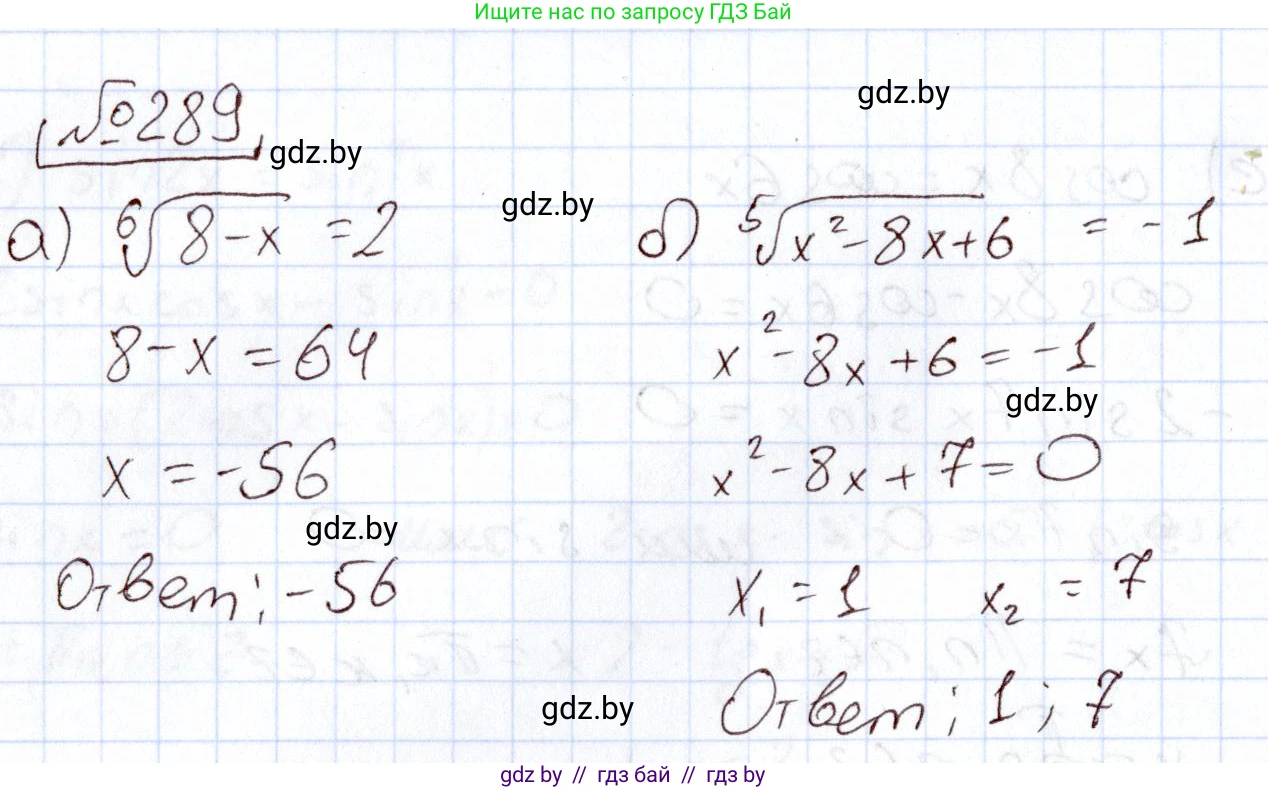 Ищите нас по запросу ГДЗ Бай
gdz.by
№289
gdz.by
gdz.by
а) ⁶√(8-x) = 2
8-x = 64
x = -56
gdz.by
Ответ: -56
б) ⁵√(x²-8x+6) = -1
x²-8x+6 = -1
gdz.by
x²-8x+7=0
x₁ = 1 x₂ = 7
gdz.by
Ответ: 1; 7
gdz by // гдз бай // гдз by